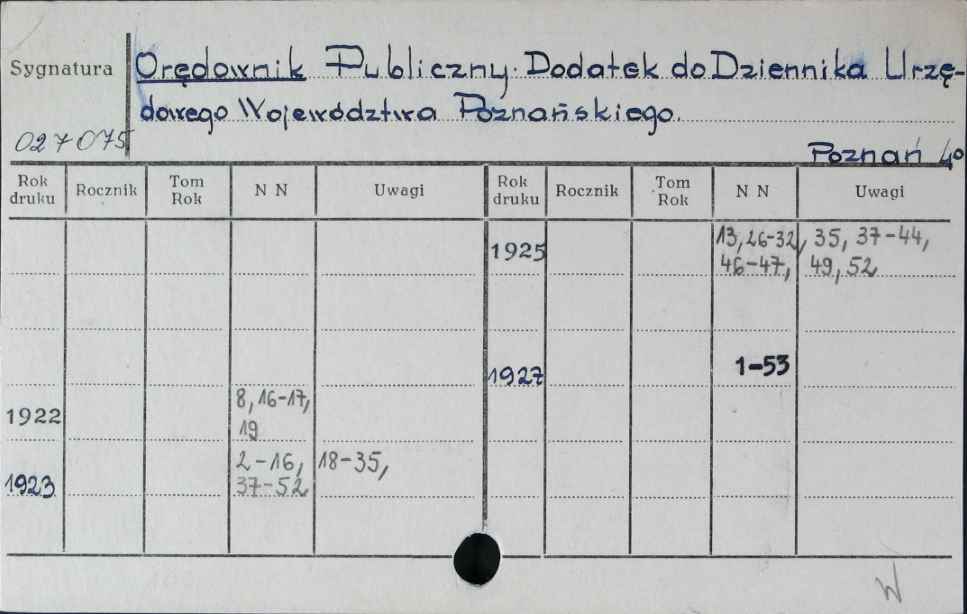 Sygnatura
Orędownik Publiczny. Dodatek do Dziennika Urzę-
dowego Województwa Poznańskiego.
027075
Poznań 4°
Rok druku Rocznik Tom Rok N N Uwagi Rok druku Rocznik Tom Rok N N Uwagi
1925 13, 26-32, 35, 37-44,
46-47, 49, 52
1927 1-53
1922 8, 16-17,
19
1923 2-16, 18-35,
37-52
W